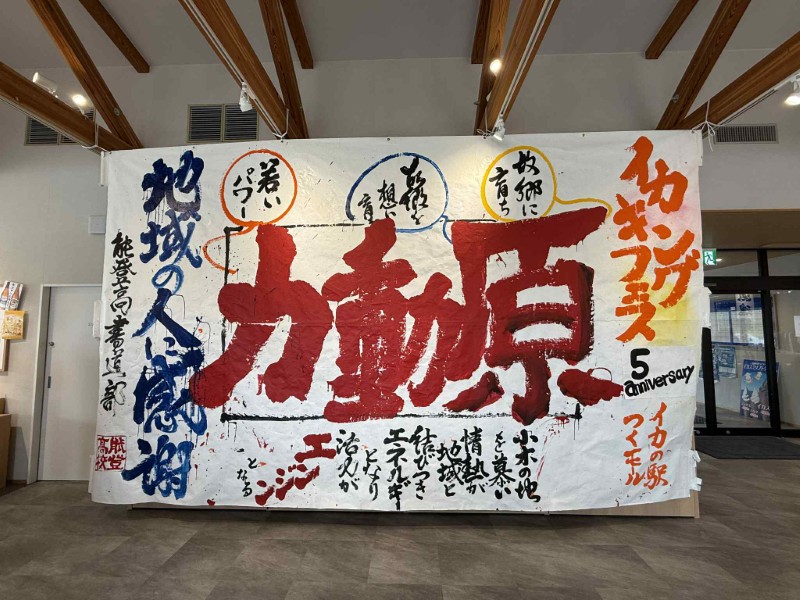 イカキング
フェス
5
anniversary
イカの駅
つくモール
故郷に
育ち
故郷を
想い
若い
パワー
原動力
小木の地
を慕い
情熱が
地域と
結びつき
エネルギー
となり
活気が
エンジン
となる
地域の人に感謝
能登高書道部
能登
高校